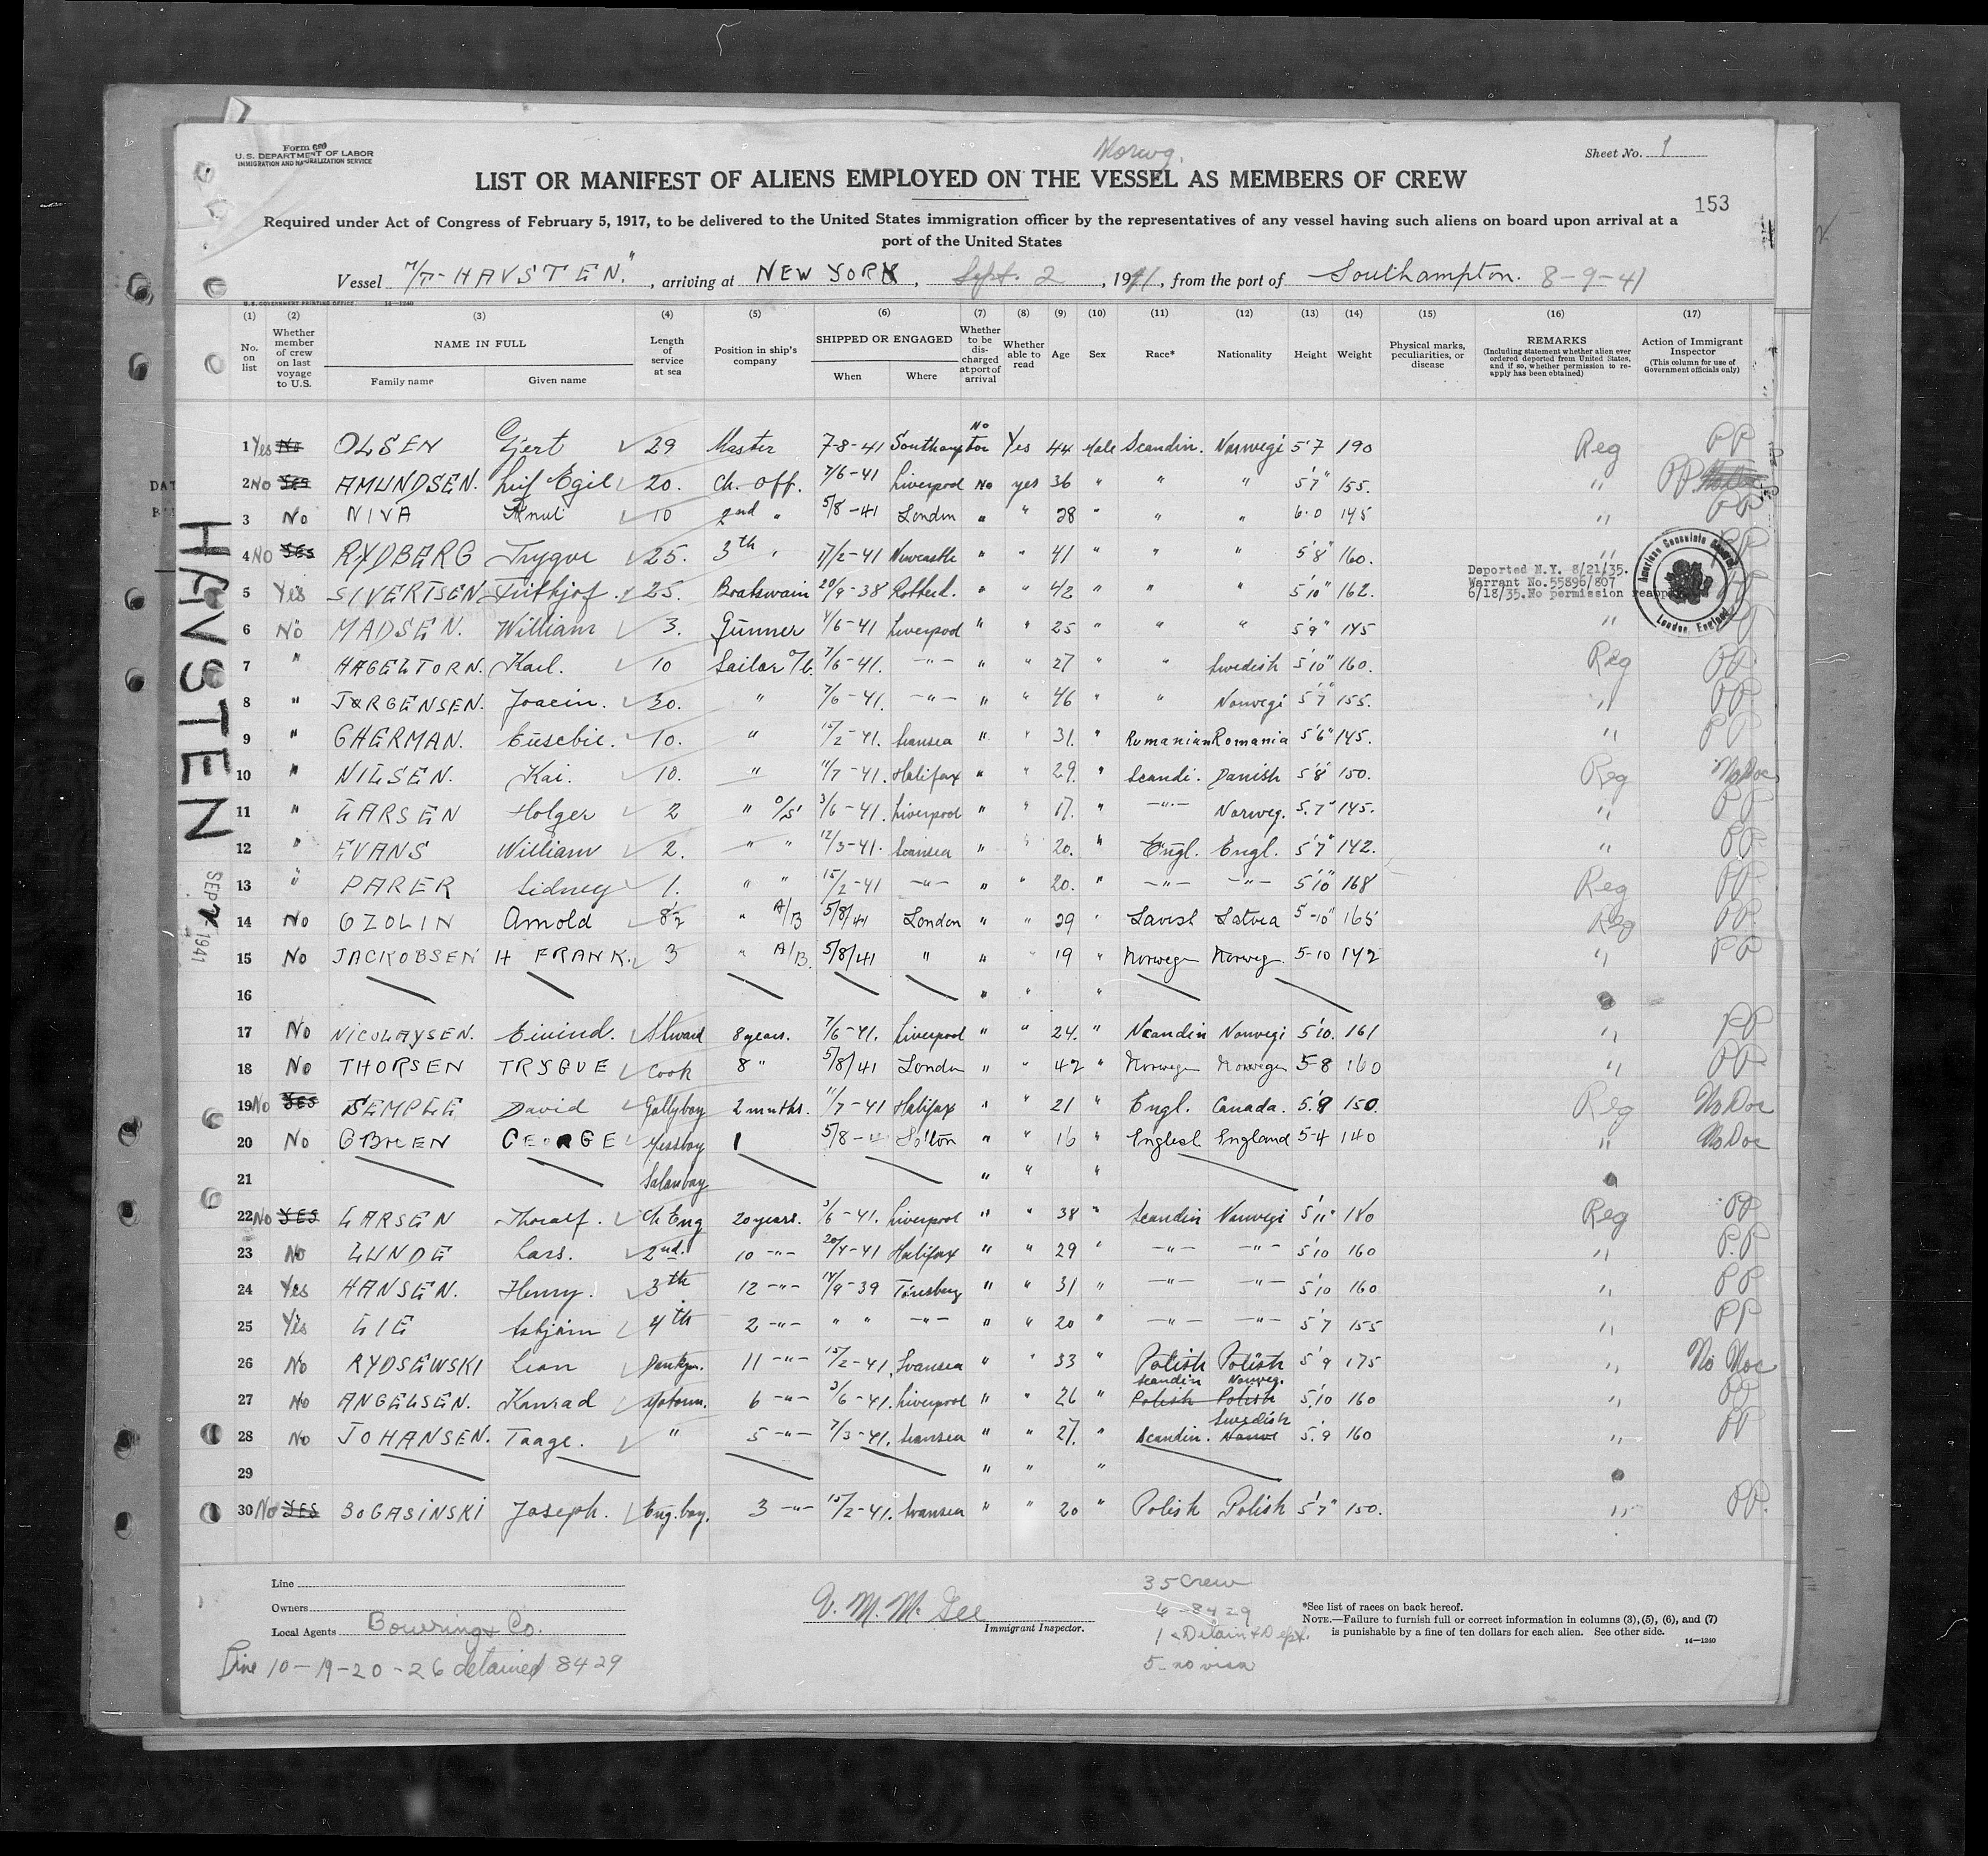 Form 689
U.S. DEPARTMENT OF LABOR
IMMIGRATION AND NATURALIZATION SERVICE
Norwg.
Sheet No. 1
LIST OR MANIFEST OF ALIENS EMPLOYED ON THE VESSEL AS MEMBERS OF CREW
153
Required under Act of Congress of February 5, 1917, to be delivered to the United States immigration officer by the representatives of any vessel having such aliens on board upon arrival at a
port of the United States
Vessel "M/T-HAVSTEN." , arriving at NEW YORK , Sept. 2 , 1941, from the port of Southampton. 8-9-41
U.S. GOVERNMENT PRINTING OFFICE 14—1240
(1) (2) (3) (4) (5) (6) (7) (8) (9) (10) (11) (12) (13) (14) (15) (16) (17)
No. on list
Whether member of crew on last voyage to U.S.
NAME IN FULL
Family name
Given name
Length of service at sea
Position in ship's company
SHIPPED OR ENGAGED
When
Where
Whether to be discharged at port of arrival
Whether able to read
Age
Sex
Race*
Nationality
Height
Weight
Physical marks, peculiarities, or disease
REMARKS
(Including statement whether alien ever ordered deported from United States, and if so, whether permission to reapply has been obtained)
Action of Immigrant Inspector
(This column for use of Government officials only)
1 Yes No OLSEN Gjert 29 Master 7-8-41 Southampton No Yes 44 Male Scandin. Norwegi 5'7 190 Reg PP
2 No Yes AMUNDSEN. Leif Egil 20. Ch. Off. 7/6-41 Liverpool No yes 36 " " " 5'7" 155. " PP
3 No NIVA Knut 10 2nd " 5/8-41 London " " 28 " " " 6.0 145 " PP
4 No Yes RYDBERG Trygve 25. 3th " 17/2-41 Newcastle " " 41 " " " 5'8" 160. " PP
5 Yes SIVERTSEN Frithjof. 25. Boatswain 20/9-38 Rotterd. " " 42 " " " 5'10" 162.
Deported N.Y. 8/21/35.
Warrant No.55896/807
6/18/35.No permission reapp
American Consulate General
London, England
6 No MADSEN. William 3. Gunner 4/6-41 Liverpool " " 25 " " " 5'9" 145 "
7 " HAGELTORN. Karl. 10 Sailor 7/6-41. -"- " " 27 " " Swedish 5'10" 160. Reg PP
8 " JØRGENSEN. Joacin. 30. " 7/6-41. -"- " " 46 " " Norwegi 5'7" 155. " PP
9 " GHERMAN. Eusebie. 10. " 15/2-41. Swansea " " 31. " Rumanian Romania 5'6" 145. " PP
10 " NILSEN. Kai. 10. " 11/7-41. Halifax " " 29. " Scandi. Danish 5'8" 150. Reg No Doc
11 " LARSEN Holger 2 " O/S 3/6-41. Liverpool " " 17. " -"- Norweg. 5.7" 145. " PP
12 " EVANS William 2. " " 12/3-41. Swansea " " 20. " Engl. Engl. 5'7" 142. " PP
13 " PARER Sidney 1. " " 15/2-41 -"- " " 20. " -"- -"- 5'10" 168 Reg PP
14 No OZOLIN Arnold 8½ " A/B 5/8/41 London " " 29 " Latvia 5-10" 165 Reg PP
15 No JACKOBSEN H FRANK. 3 " A/B. 5/8/41 " " " 19 " Norweg Norweg 5-10 142 " PP
16 " " "
17 No NICOLAYSEN. Eivind. Stward 8 years. 7/6-41. Liverpool " " 24. " Scandin Norwegi 5'10. 161 " PP
18 No THORSEN TRYGVE Cook 8 " 5/8/41 London " " 42 " Norwegn Norwegn 5-8 160 " PP
19 No Yes SEMPLE David Gallyboy 2 mnths. 11/7-41 Halifax " " 21 " Engl. Canada. 5.9 150. Reg No Doc
20 No OBRIEN GEORGE Messboy 1 5/8- So'ton " " 16 " English England 5-4 140 " No Doc
21 Salonboy " " "
22 No YES LARSEN Thoralf. Ch Eng 20 years. 3/6-41. Liverpool " " 38 " Scandin Norwegi 5'11" 180 Reg PP
23 No LUNDE Lars. 2nd. 10 -"- 20/4-41 Halifax " " 29 " -"- -"- 5'10 160 " P.P
24 Yes HANSEN. Henry. 3th 12 -"- 14/9-39 Tønsberg " " 31 " -"- -"- 5'10 160 " PP
25 Yes LIE Asbjørn 4th 2 -"- " " -"- " " 20 " -"- -"- 5'7 155 " PP
26 No RYDSEWSKI Leon 11 -"- 15/2-41. Swansea " " 33 " Polish Polish 5'9 175 " No Doc
27 No ANGELSEN. Konrad Motorm. 6 -"- 3/6-41. Liverpool " " 26 " Scandin Norweg. Polish Polish 5'10 160 " PP
28 No JOHANSEN. Taage. " 5 -"- 7/3-41. Swansea " " 27. " Scandin. Swedish 5'.9 160 " PP
29 " " "
30 No YES BOGASINSKI Joseph. Eng. boy. 3 -"- 15/2-41. Swansea " " 20 " Polish Polish 5'7" 150. " PP.
HAVSTEN
SEP 2 1941
Line
Owners
Local Agents Bowring & Co.
Line 10-19-20-26 detained 8429
Immigrant Inspector.
35 Crew
4 - 8429
1 - Detain & Dept.
5 - no visa
*See list of races on back hereof.
NOTE.—Failure to furnish full or correct information in columns (3), (5), (6), and (7)
is punishable by a fine of ten dollars for each alien. See other side.
14—1240